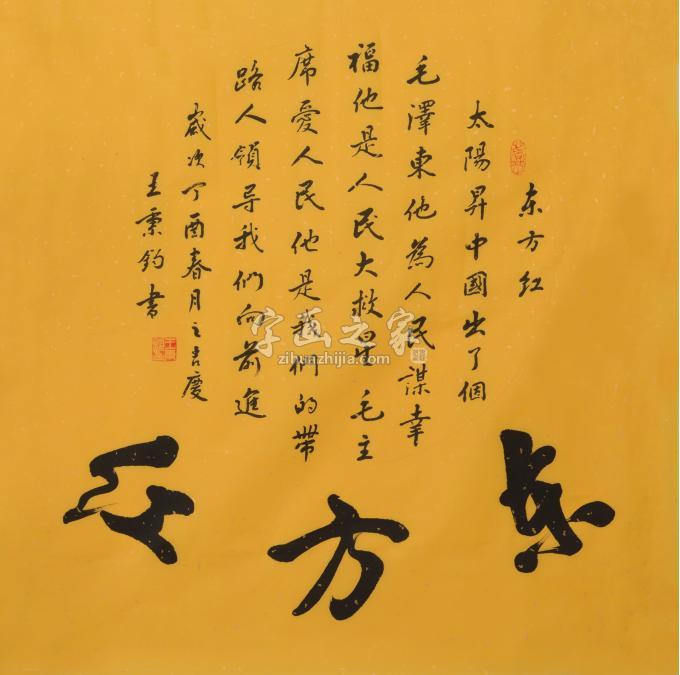 东方红
太陽昇中國出了個
毛澤東他為人民謀幸
福他是人民大救星毛主
席愛人民他是我們的帶
路人領导我們向前進
歲次丁酉春月之吉慶
王秉钧書
东方红
字画之家
zihuazhijia.com